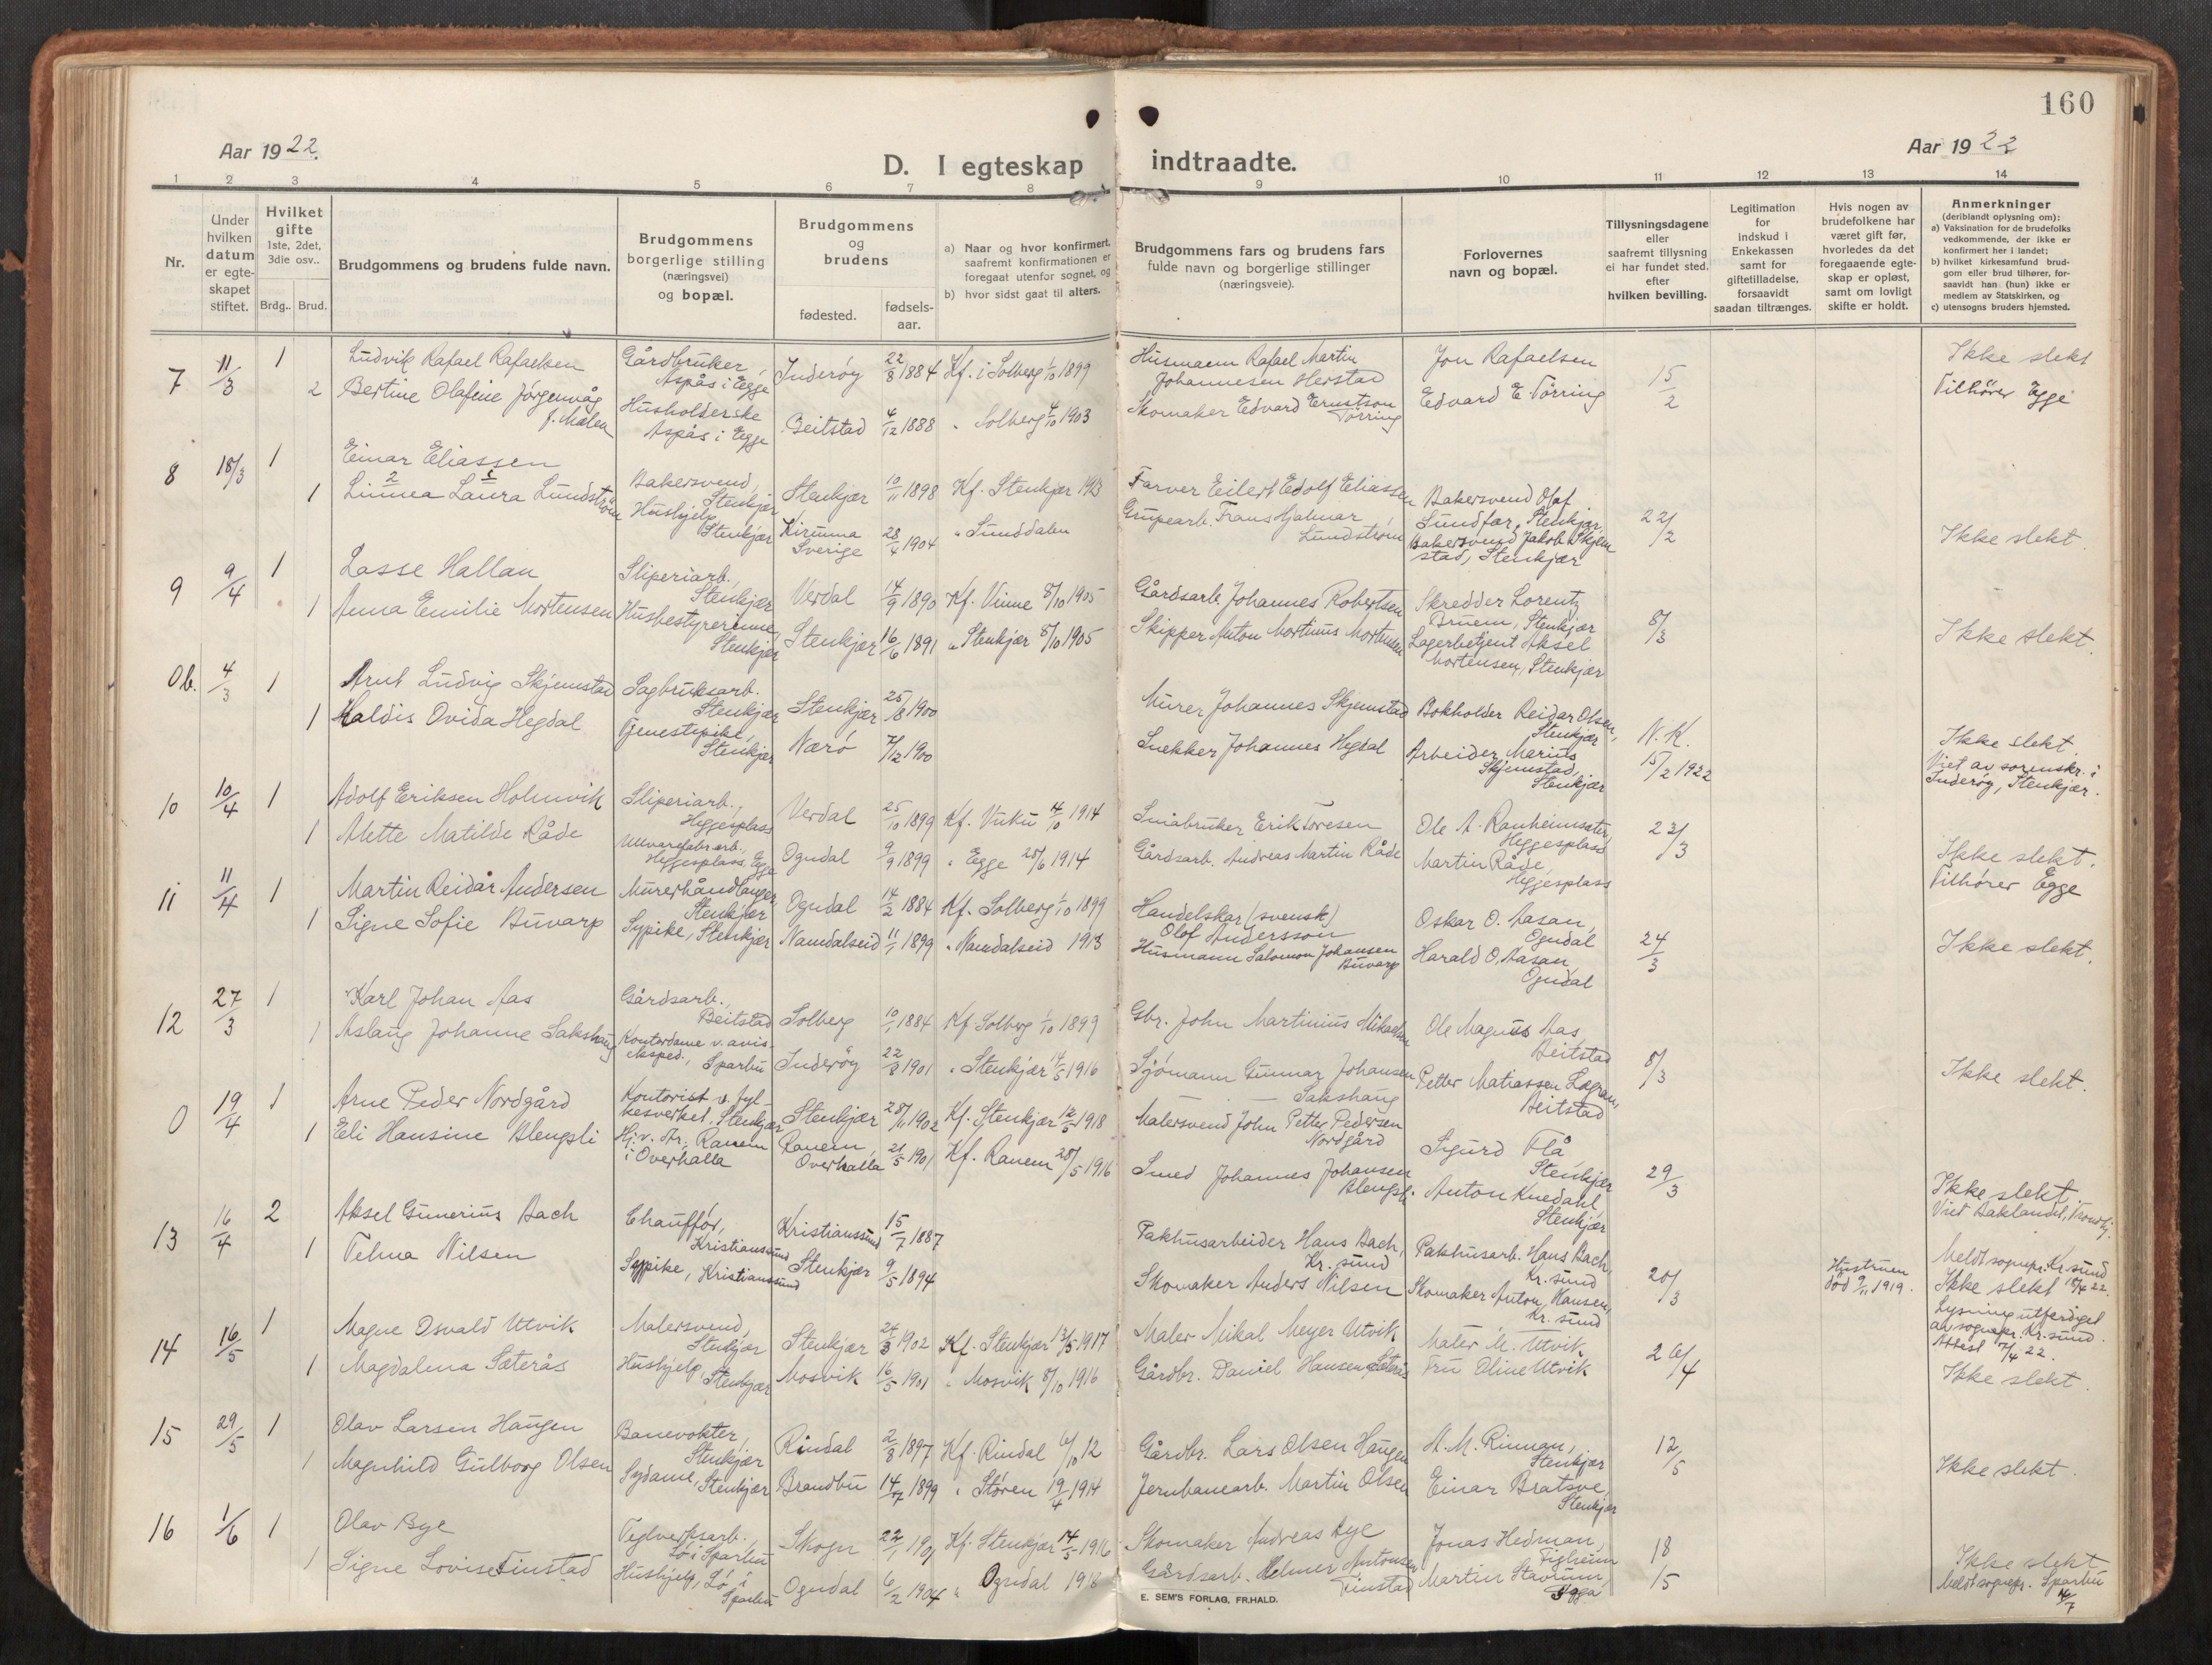 160
Aar 1922.
D. I egteskap indtraadte.
Aar 1922
1 2 3 4 5 6 7 8 9 10 11 12 13 14
Nr.
Under hvilken datum er egteskapet stiftet.
Hvilket gifte 1ste, 2det, 3die osv..
Brdg.. Brud.
Brudgommens og brudens fulde navn.
Brudgommens borgerlige stilling (næringsvei) og bopæl.
Brudgommens og brudens
fødested. fødsels-aar.
a) Naar og hvor konfirmert, saafremt konfirmationen er foregaat utenfor sognet, og
b) hvor sidst gaat til alters.
Brudgommens fars og brudens fars fulde navn og borgerlige stillinger (næringsveie).
Forlovernes navn og bopæl.
Tillysningsdagene eller saafremt tillysning ei har fundet sted, efter hvilken bevilling.
Legitimation for indskud i Enkekassen samt for giftetilladelse, forsaavidt saadan tiltrænges.
Hvis nogen av brudefolkene har været gift før, hvorledes da det foregaaende egteskap er opløst, samt om lovligt skifte er holdt.
Anmerkninger (deriblandt oplysning om):
a) Vaksination for de brudefolks vedkommende, der ikke er konfirmert her i landet;
b) hvilket kirkesamfund brudgom eller brud tilhører, forsaavidt han (hun) ikke er medlem av Statskirken, og
c) utensogns bruders hjemsted.
7 11/3 1 Ludvik Rafael Rafaelsen Gårdbruker, Aspås i Egge Inderøy 22/8 1884 Kf. i Solberg 1/10 1899 Husmann Rafael Martin Johannesen Herstad Jon Rafaelsen 15/2 Ikke slekt
2 Bertine Olafine Jørgenvåg f. Målen Husholderske Aspås i Egge Beitstad 4/12 1888 " Solberg 4/10 1903 Skomaker Edvard Ernstson Tørring Edvard E. Tørring Tilhører Egge
8 18/3 1 Einar Eliassen Bakersvend, Stenkjær Stenkjær 10/11 1898 Kf. Stenkjær 1913 Farver Eilert Edolf Eliassen Bakersvend Olaf Sundfær, Stenkjær 22/2
1 Linnea Laura Lundstrøm Hushjelp Stenkjær Kiruna Sverige 28/4 1904 " Sunddalen Grubearb. Frans Hjalmar Lundstrøm Bakersvend Jakob Skjemstad, Stenkjær Ikke slekt.
9 9/4 1 Lasse Hallan Sliperiarb., Stenkjær Verdal 14/9 1890 Kf. Vinne 8/10 1905 Gårdsarb. Johannes Robertsen Skredder Lorentz Bruem, Stenkjær 8/3
1 Anna Emilie Mortensen Husbestyrerinne, Stenkjær Stenkjær 16/6 1891 " Stenkjær 8/10 1905 Skipper Anton Mortinus Mortensen Lagerbetjent Aksel Mortensen, Stenkjær Ikke slekt.
Ob. 4/3 1 Arnt Ludvig Skjemstad Sagbruksarb. Stenkjær Stenkjær 25/8 1900 Murer Johannes Skjemstad Bokholder Reidar Olsen, Stenkjær N.K. 15/2 1922
1 Haldis Ovida Hegdal Tjenestepike, Stenkjær Nærø 7/12 1900 Snekker Johannes Hegdal Arbeider Marius Skjemstad, Stenkjær Ikke slekt. Viet av sorenskr. i Inderøy, Stenkjær.
10 10/4 1 Adolf Eriksen Holmvik Sliperiarb., Heggesplass Verdal 25/10 1899 Kf. Vuku 4/10 1914 Småbruker Erik Toresen Ole A. Ranheimsæter Heggesplass 23/3
1 Mette Matilde Råde Ullvarefabr.arb., Heggesplass, Egge Ogndal 9/9 1899 " Egge 28/6 1914 Gårdsarb. Andreas Martin Råde Martin Råde, Heggesplass Ikke slekt. Tilhører Egge
11 11/4 1 Martin Reidar Andersen Murerhåndlanger, Stenkjær Ogndal 14/2 1884 Kf. Solberg 1/10 1899 Handelskar (svensk) Olof Andersson Oskar O. Aasan, Ogndal 24/3
1 Signe Sofie Buvarp Sypike, Stenkjær Namdalseid 11/1 1899 " Namdalseid 1913 Husmann Salomon Johansen Buvarp Harald O. Aasan, Ogndal Ikke slekt.
12 27/3 1 Karl Johan Aas Gårdsarb., Beitstad Solberg 10/1 1884 Kf. Solberg 1/10 1899 Gbr. John Martinius Mikaelsen Ole Magnus Aas, Beitstad 8/3
1 Aslaug Johanne Sakshaug Kontordame v. avisekspd., Sparbu Inderøy 22/8 1901 " Stenkjær 14/5 1916 Sjømann Gunnar Johansen Sakshaug Petter Matiassen Lægran, Beitstad Ikke slekt.
0 19/4 1 Arne Peder Nordgård Kontorist v. fylkesverket, Stenkjær Stenkjær 28/11 1902 Kf. Stenkjær 12/5 1918 Malersvend John Petter Pedersen Nordgård Sigurd Flå, Stenkjær 29/3
1 Eli Hansine Blengsli Hj. v. Ar. Ranem i Overhalla Ranem, Overhalla 21/5 1901 Kf. Ranem 28/5 1916 Smed Johannes Johansen Blengsli Anton Knedahl, Stenkjær Ikke slekt. Viet Baklandet, Trondhj.
13 16/4 2 Aksel Gunerius Bach Chauffør, Kristianssund Kristianssund 15/7 1887 Pakhusarbeider Hans Bach, Kr. sund Pakhusarb. Hans Bach, Kr. sund 20/3 Hustruen død 9/11 1919. Meldt sognepr. Kr. sund 18/4 22.
1 Telma Nilsen Sypike, Kristianssund Stenkjær 9/5 1894 Skomaker Anders Nilsen Skomaker Anton Hansen, Kr. sund Ikke slekt Lysning utferdiget av sognepr. Kr. sund. Attest 7/4 22.
14 16/5 1 Magne Osvald Utvik Malersvend, Stenkjær Stenkjær 24/3 1902 Kf. Stenkjær 13/5 1917 Maler Mikal Meyer Utvik Maler M. Utvik 26/4
1 Magdalena Sæterås Hushjelp, Stenkjær Mosvik 16/5 1901 " Mosvik 8/10 1916 Gårdbr. Daniel Hansen Sæterås Fru Oline Utvik Ikke slekt.
15 29/5 1 Olav Larsen Haugen Banevokter, Stenkjær Rindal 2/8 1897 Kf. Rindal 6/10 12 Gårdbr. Lars Olsen Haugen A. M. Rinnan, Stenkjær 12/5
1 Magnhild Gulborg Olsen Sydame, Stenkjær Brandbu 14/7 1899 " Støren 19/4 1914 Jernbanearb. Martin Olsen Einar Bratsve, Stenkjær Ikke slekt.
16 1/6 1 Olav Bye Teglverksarb., Lø i Sparbu Skogn 22/1 1901 Kf. Stenkjær 14/5 1916 Skomaker Andreas Bye Jonas Hedman, Figlrum 18/5
1 Signe Lovise Finstad Hushjelp, Lø i Sparbu Ogndal 6/2 1904 " Ogndal 1918 Gårdsarb. Helmer Antonsen Finstad Martin Stavrum, Egge Ikke slekt Meldt sognepr. Sparbu 14/7
E. SEM'S FORLAG, FR.HALD.